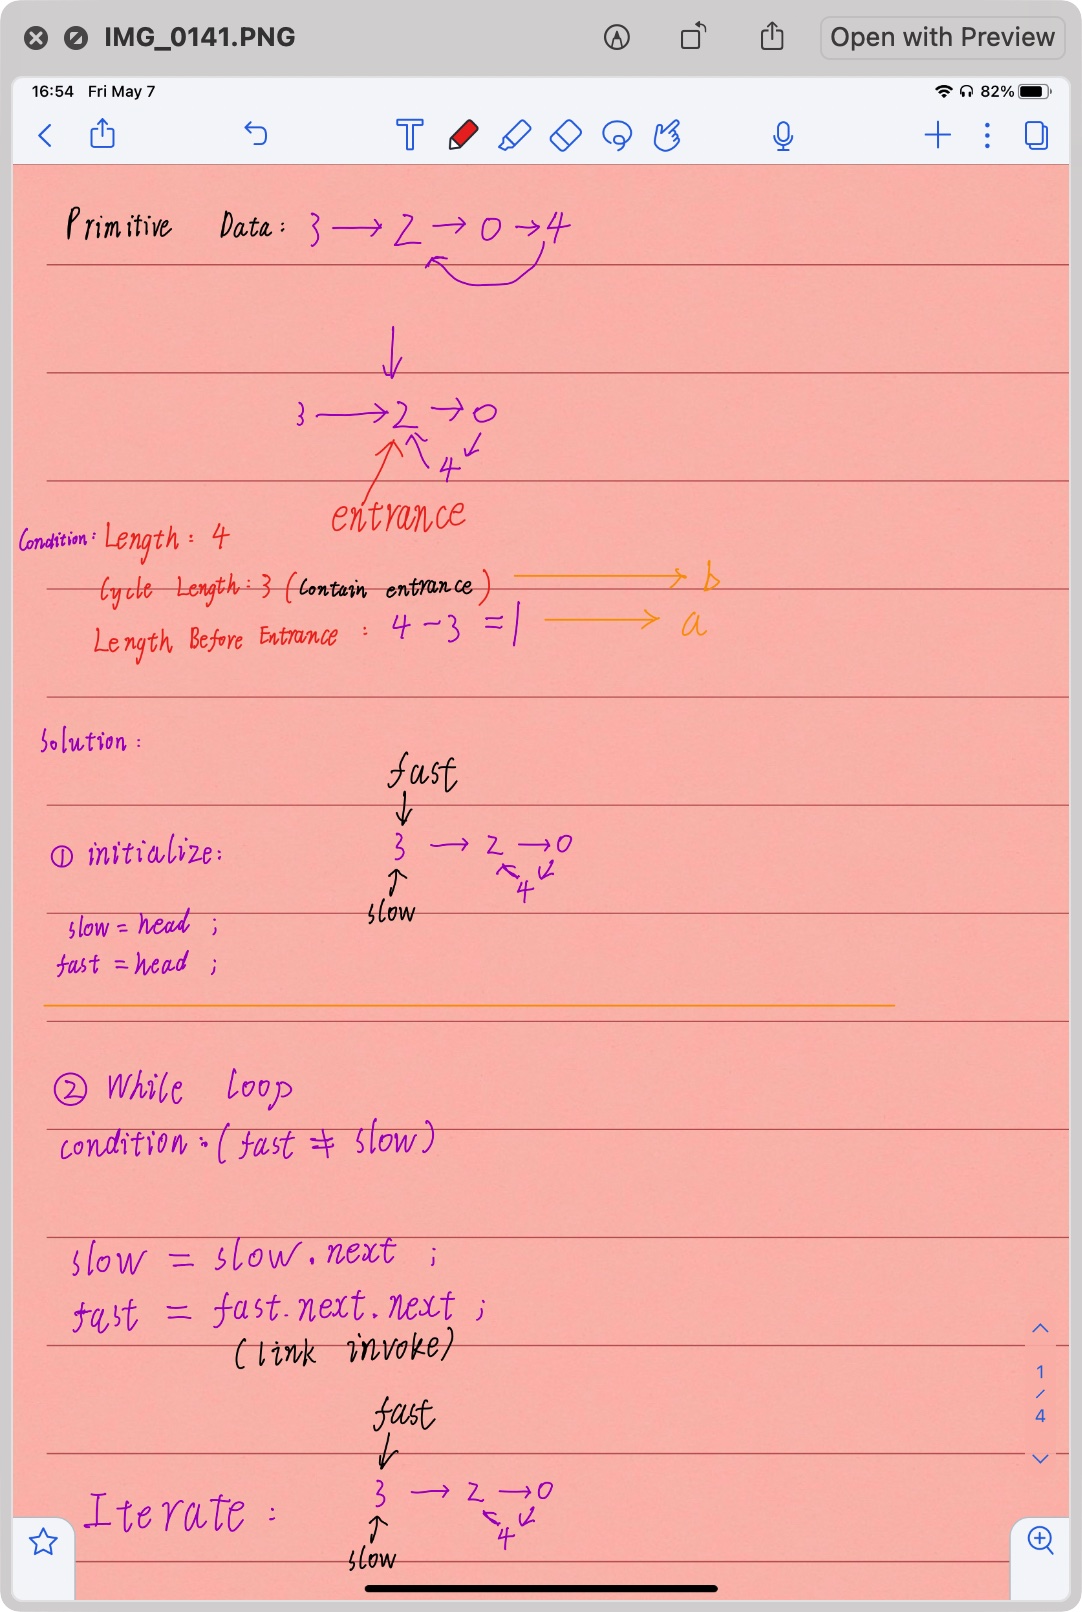 IMG_0141.PNG
Open with Preview
16:54 Fri May 7
82%
T
Primitive Data: 3 → 2 → 0 → 4
↓
3 → 2 → 0
4
entrance
Condition: Length: 4
Cycle Length: 3 (contain entrance) → b
Length Before Entrance : 4 - 3 = 1 → a
Solution:
fast
↓
① initialize: 3 → 2 → 0
4
↑
slow
slow = head ;
fast = head ;
② While Loop
condition: (fast ≠ slow)
slow = slow.next ;
fast = fast.next.next ;
(link invoke)
fast
↓
Iterate : 3 → 2 → 0
4
↑
slow
1
/
4